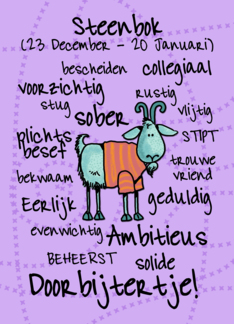 Steenbok
(23 December - 20 Januari)
bescheiden collegiaal
voorzichtig rustig
stug vlijtig
sober
plichts besef STIPT
bekwaam trouwe vriend
Eerlijk geduldig
evenwichtig Ambitieus
BEHEERST solide
Doorbijtertje!